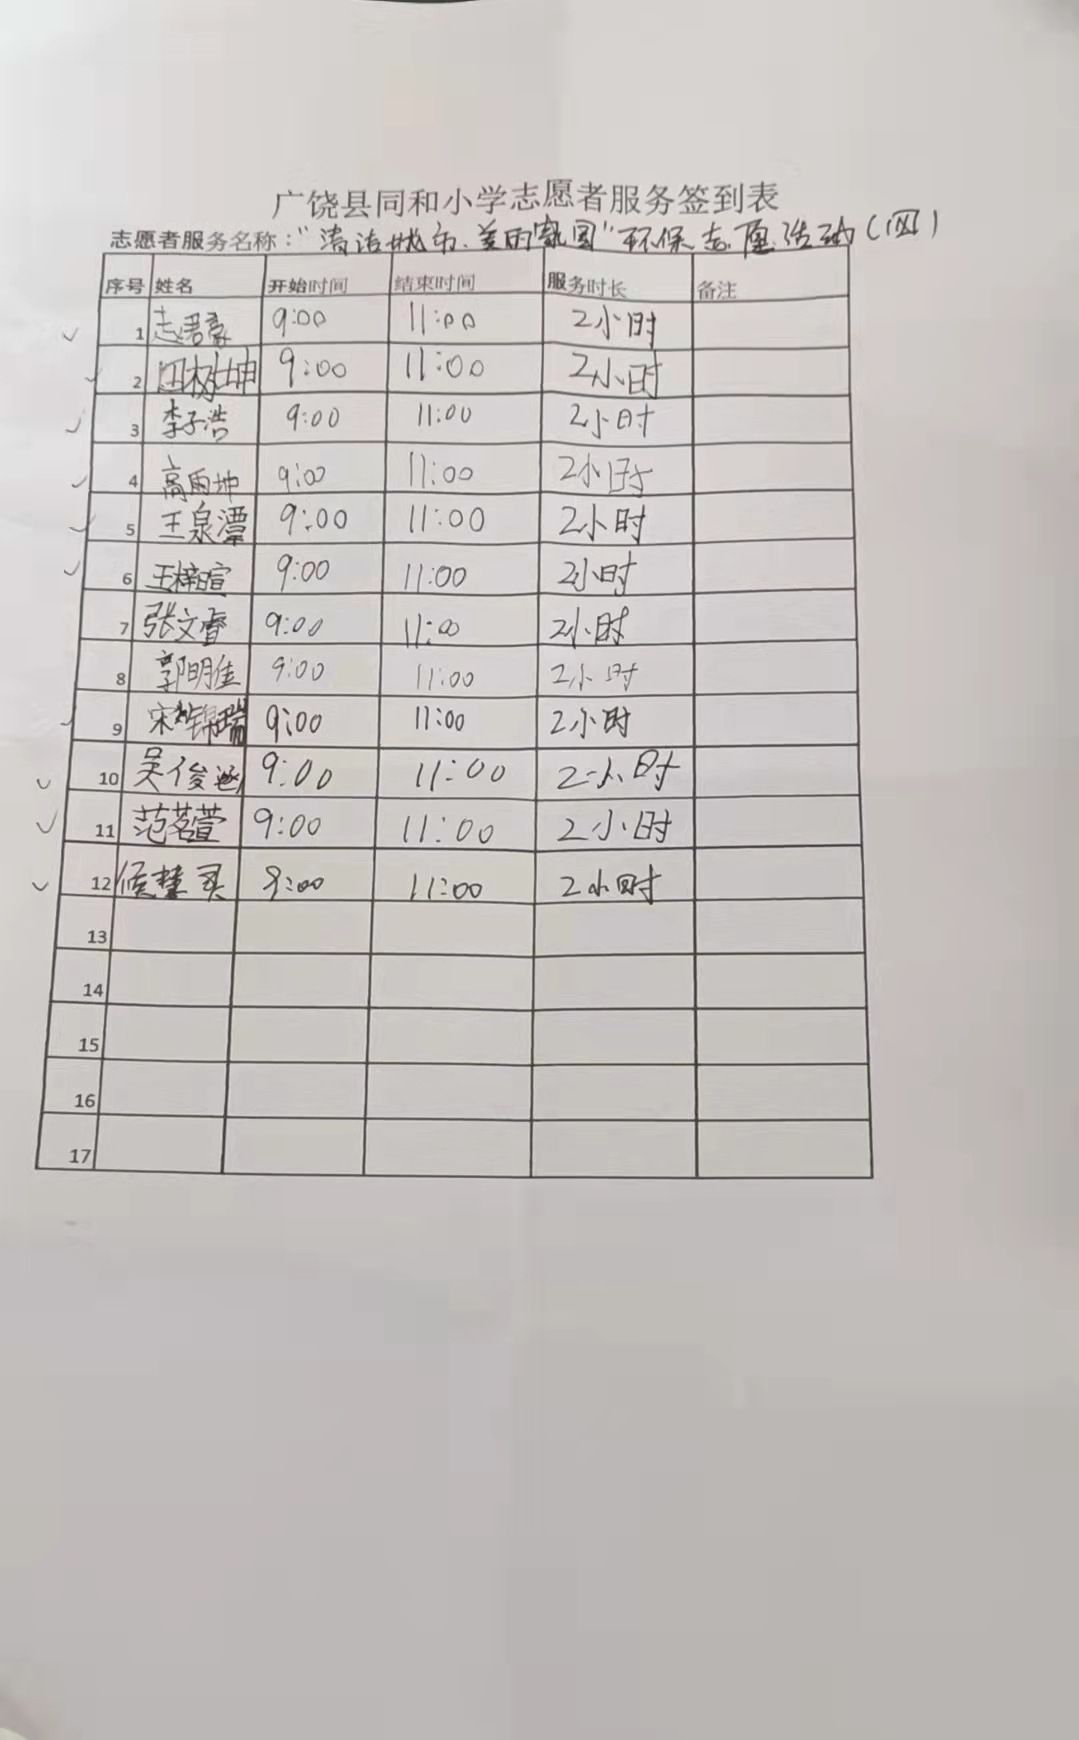 广饶县同和小学志愿者服务签到表
志愿者服务名称："清洁城市、美丽家园"环保志愿活动（四）
序号 姓名 开始时间 结束时间 服务时长 备注
1 9:00 11:00 2小时
2 9:00 11:00 2小时
3 李子浩 9:00 11:00 2小时
4 高雨坤 9:00 11:00 2小时
5 王泉潭 9:00 11:00 2小时
6 王梓暄 9:00 11:00 2小时
7 张文睿 9:00 11:00 2小时
8 郭明佳 9:00 11:00 2小时
9 宋锦瑞 9:00 11:00 2小时
10 吴俊涵 9:00 11:00 2小时
11 范茗萱 9:00 11:00 2小时
12 :00 11:00 2小时
13
14
15
16
17